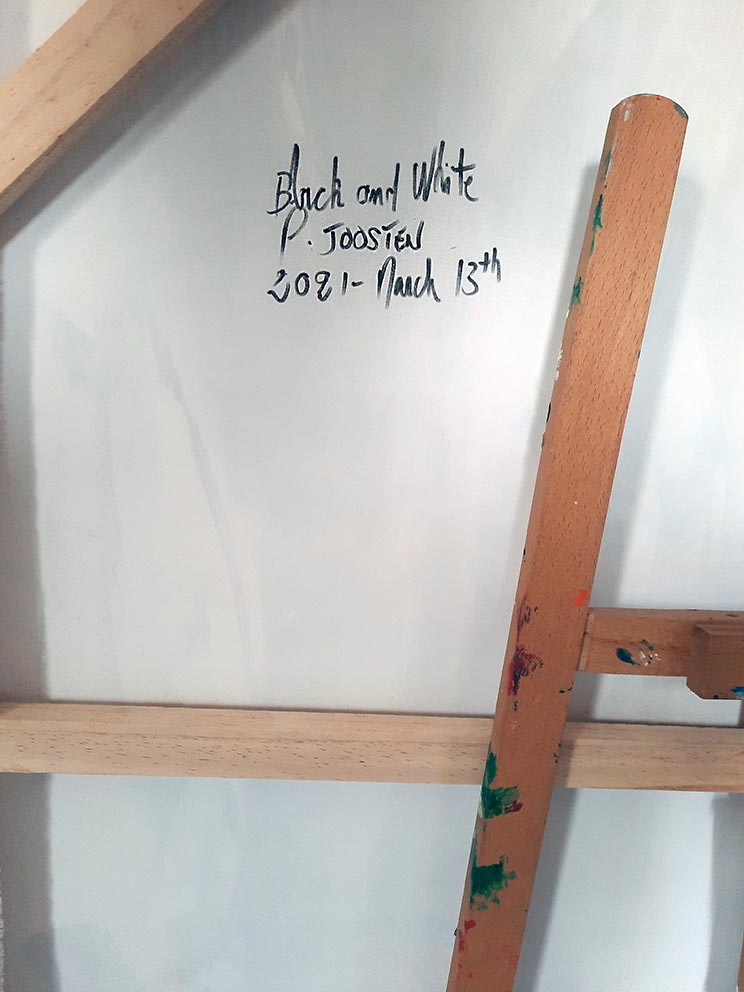 Black and White
P. JOOSTEN
2021- March 13th